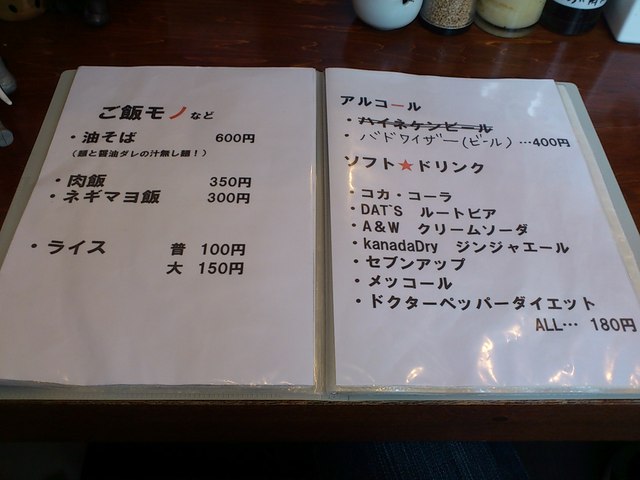 ご飯モノなど
・油そば 600円
(麺と醤油ダレの汁無し麺！)
・肉飯 350円
・ネギマヨ飯 300円
・ライス 普 100円
大 150円
アルコール
・ハイネケンビール
・バドワイザー(ビール)…400円
ソフト★ドリンク
・コカ・コーラ
・DAT'S ルートビア
・A&W クリームソーダ
・kanadaDry ジンジャエール
・セブンアップ
・メッコール
・ドクターペッパーダイエット
ALL… 180円